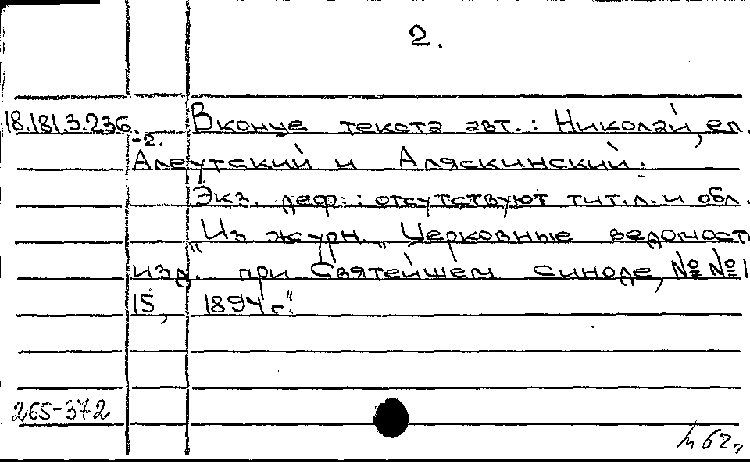 2.
18.181.3.236. В конце текста авт.: Николай, еп.
-2.
Алеутский и Аляскинский.
Экз. деф.: отсутствуют тит.л. и обл.
"Из журн. "Церковные ведомост
изд. при Святейшем синоде, №№1
15, 1894 г."
265-372